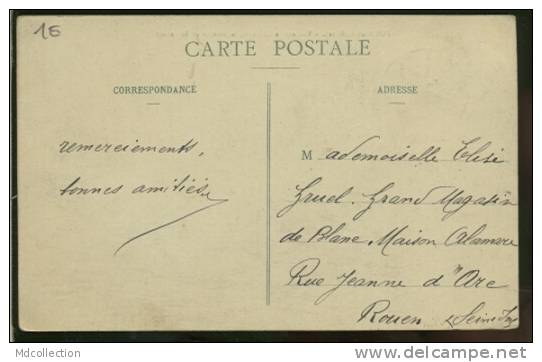 15
CARTE POSTALE
CORRESPONDANCE
ADRESSE
remerciements,
bonnes amitiés
Mademoiselle Elise
Gruel. Grand Magasin
de Blanc Maison Alamare
Rue Jeanne d'Arc
Rouen Seine Inf
Mdcollection
www.delcampe.net